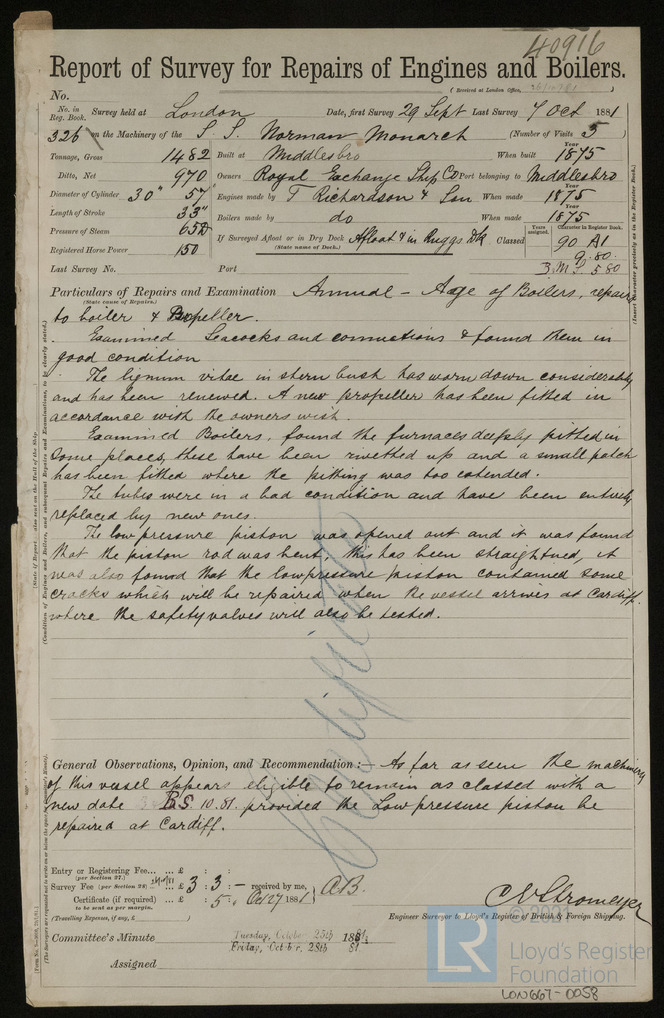 40916
Report of Survey for Repairs of Engines and Boilers.
No. (Received at London Office,
No. in Reg. Book. Survey held at London Date, first Survey 29 Sept Last Survey 7 Oct 1881
326 on the Machinery of the S. S. Norman Monarch (Number of Visits 5)
Tonnage, Gross 1482 Built at Middlesbro When built Year 1875
Ditto, Net 970 Owners Royal Exchange Ship Co Port belonging to Middlesbro
Diameter of Cylinder 30" 57" Engines made by T Richardson & Son When made Year 1875
Length of Stroke 33" Boilers made by do When made Year 1875
Pressure of Steam 65 If Surveyed Afloat or in Dry Dock Afloat & in Dk Classed Years assigned. Character in Register Book. 90 A1
(State name of Dock.) 9.80
Registered Horse Power 150
Last Survey No. Port 3.M.S 5 80
Particulars of Repairs and Examination Annual – Age of Boilers, repairs
(State cause of Repairs.)
to boiler & Propeller.
Examined Seacocks and connections & found them in
good condition
The lignum vitae in stern bush has worn down considerably
and has been renewed. A new propeller has been fitted in
accordance with the owners wish.
Examined Boilers, found the furnaces deeply pitted in
some places, these have been rivetted up and a small patch
has been fitted where the pitting was too extended.
The tubes were in a bad condition and have been entirely
replaced by new ones.
The low pressure piston was opened out and it was found
that the piston rod was bent; this has been straightned, it
was also found that the low pressure piston contained some
cracks which will be repaired when the vessel arrives at Cardiff.
where the safety valves will also be tested.
General Observations, Opinion, and Recommendation :— As far as seen the machinery
of this vessel appears eligible to remain as classed with a
new date B.S. 10.81. provided the Low pressure piston be
repaired at Cardiff.
Entry or Registering Fee... ... £ : :
(per Section 27.)
Survey Fee (per Section 28) ... £ 3 : 3 : – received by me,
Certificate (if required) ... : 5 : Oct 27 1881 A.B.
(to be sent as per margin.)
(Travelling Expenses, if any, £ )
C E Stromeyer
Engineer Surveyor to Lloyd's Register of British & Foreign Shipping.
Committee's Minute Tuesday, October 25th 1881
Friday, October 28th 81
Assigned
© 2021
LR
Lloyd's Register
Foundation
LON667-0058